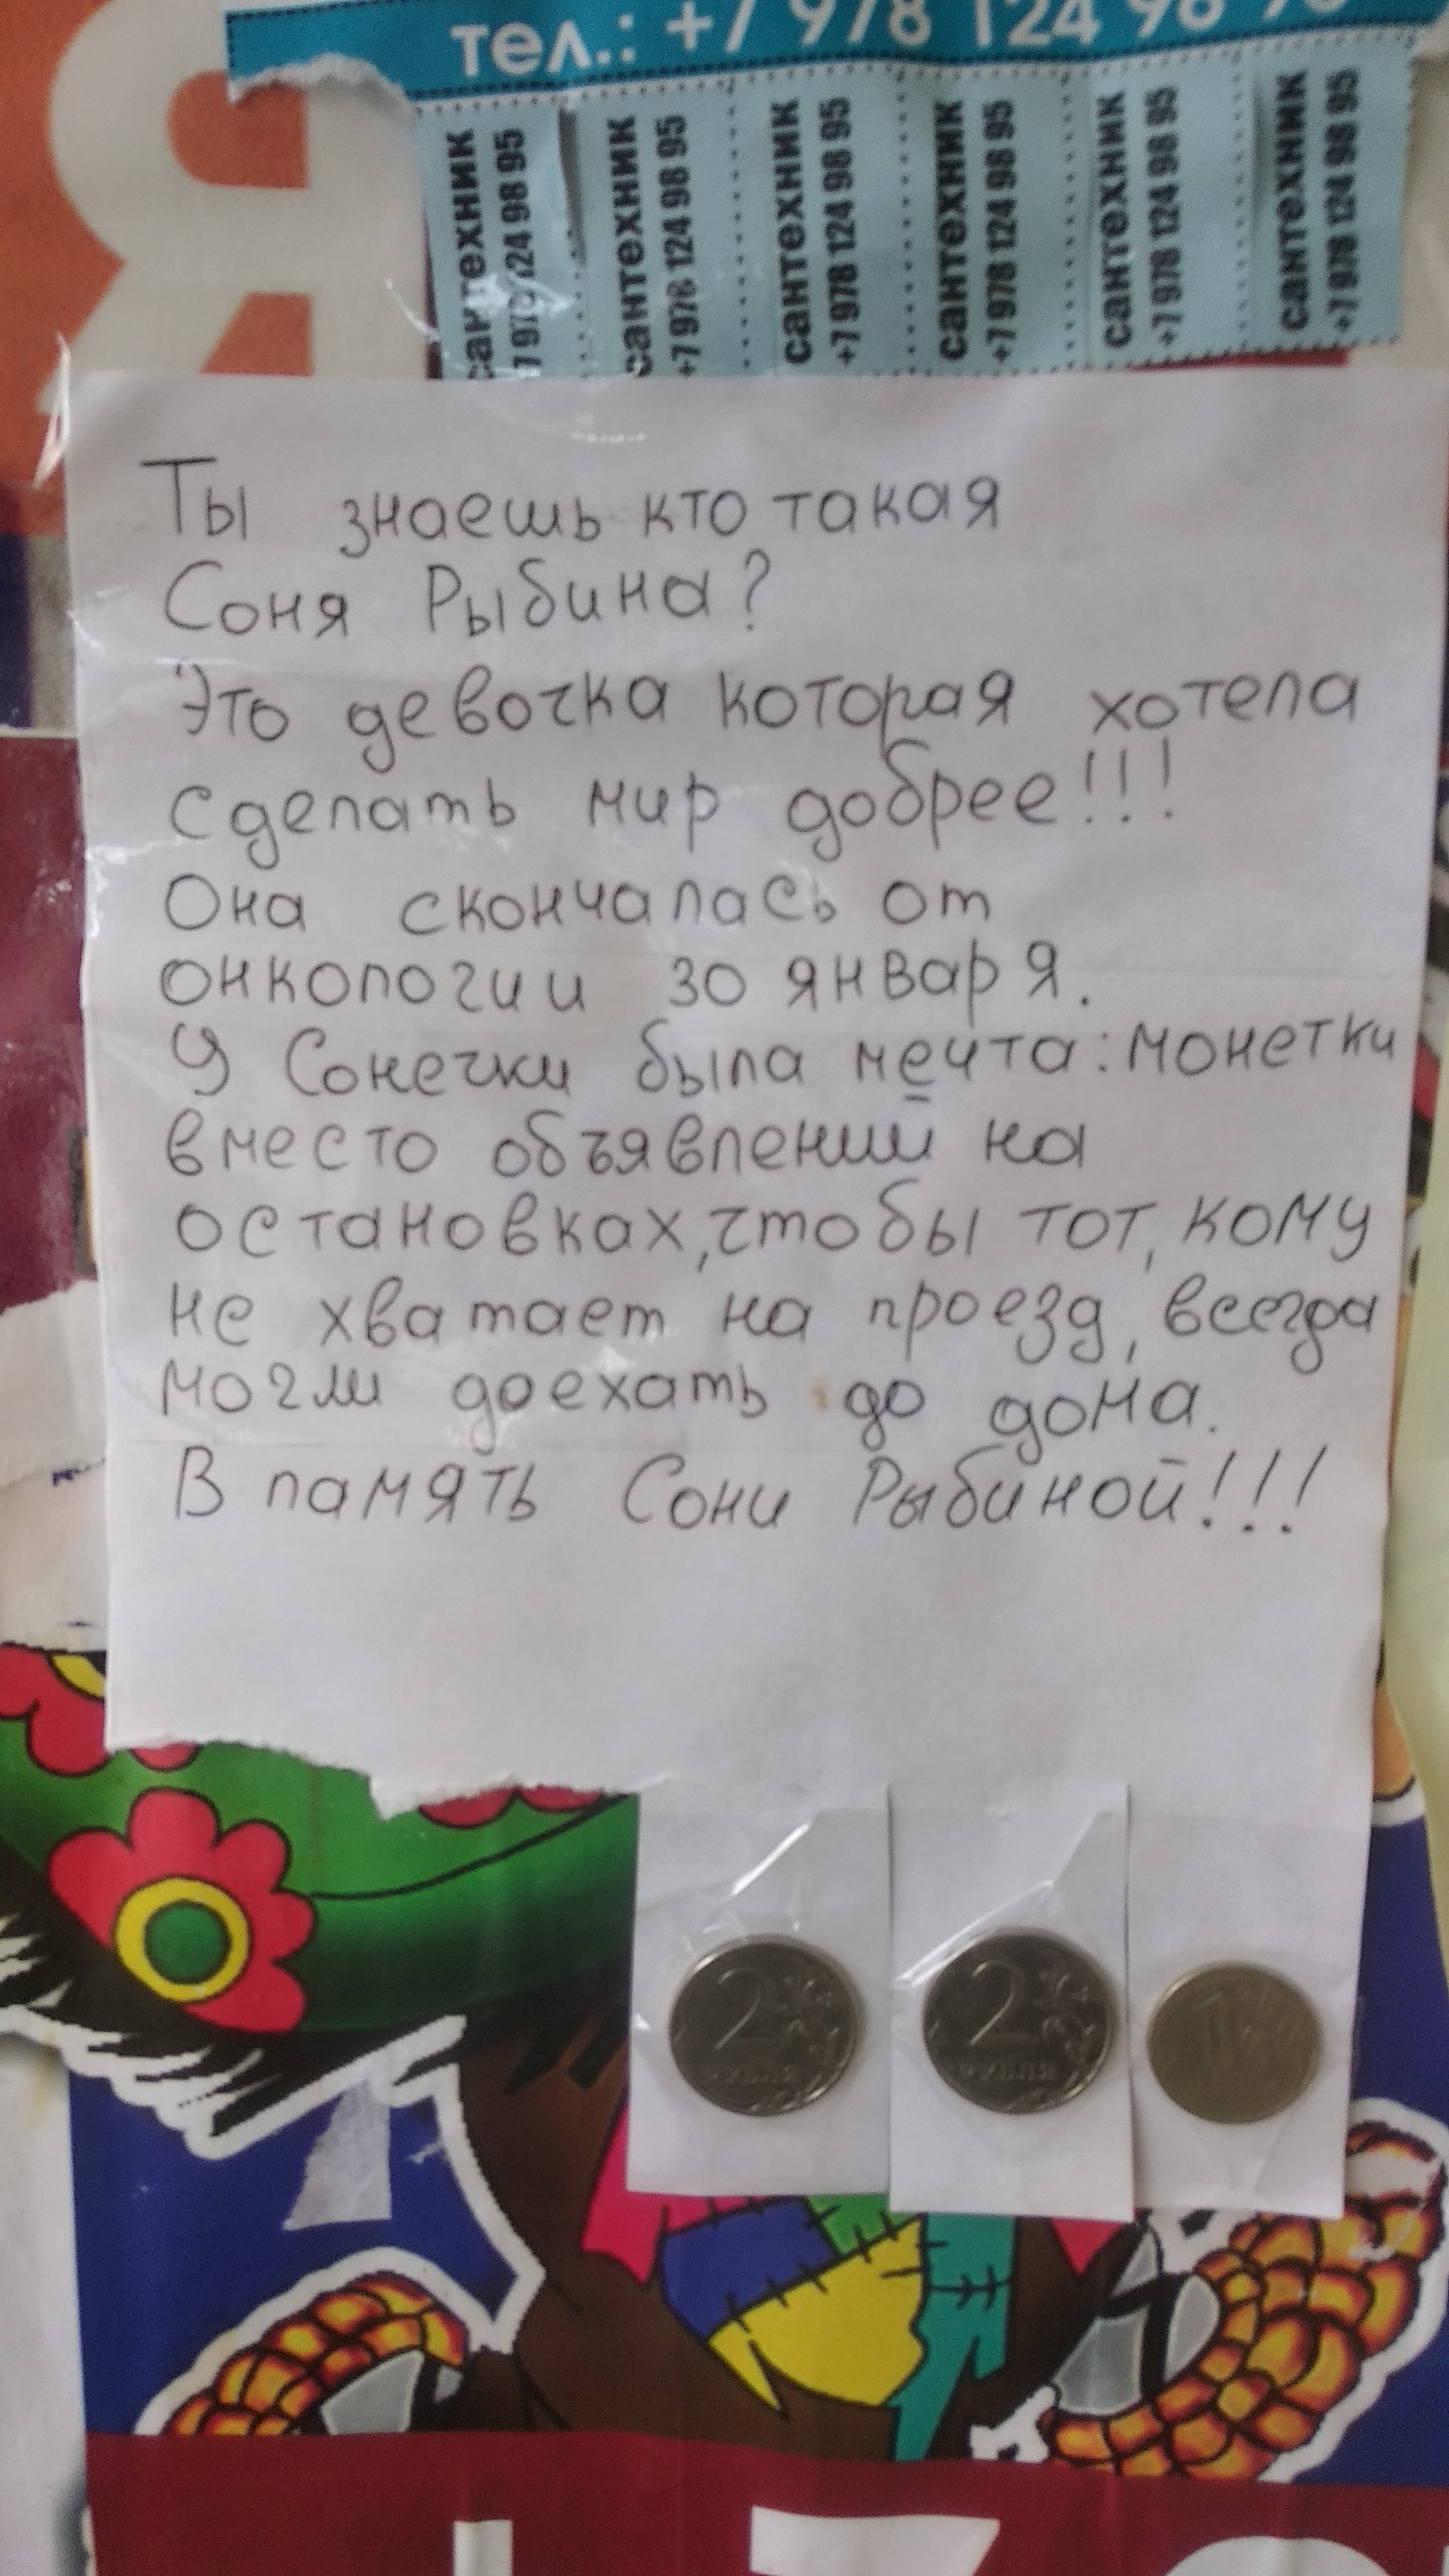 Я
тел.: +7 978 124 98 95
сантехник
+7 978 124 98 95
сантехник
+7 978 124 98 95
сантехник
+7 978 124 98 95
сантехник
+7 978 124 98 95
сантехник
+7 978 124 98 95
сантехник
+7 978 124 98 95
Ты знаешь кто такая
Соня Рыбина?
Это девочка которая хотела
сделать мир добрее!!!
Она скончалась от
онкологии 30 января.
У Сонечки была мечта: монетки
вместо объявлений на
остановках, чтобы тот, кому
не хватает на проезд, всегда
могли доехать до дома.
В память Сони Рыбиной!!!
2
РУБЛЯ
2
РУБЛЯ
1